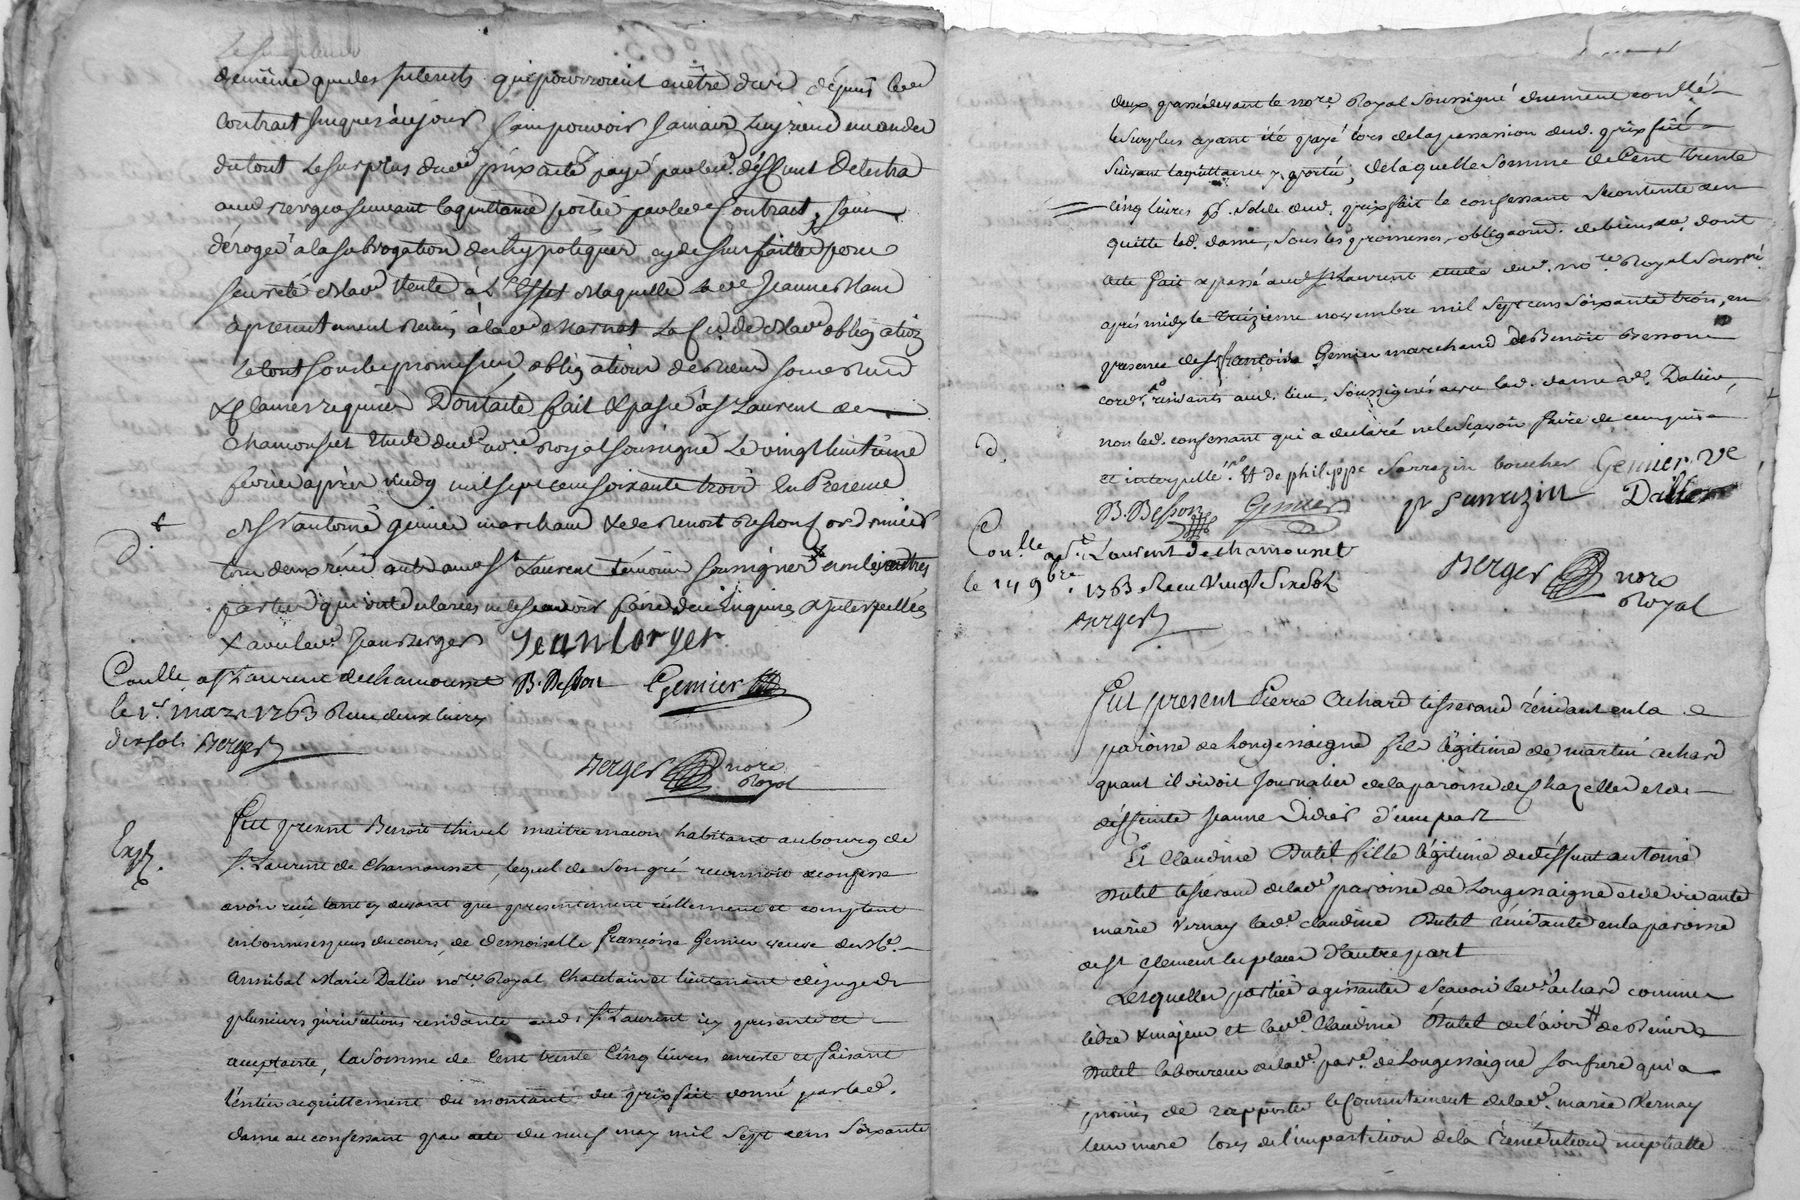 de meme que les interests qui pourroient en être dus depuis led.
contrat jusques à ce jour sans pouvoir jamais luy rien demander
du tout le surplus dud. prix a été payé par led. deffunt
suivant la quittance portée par led. Contract, sans
déroger à la subrogation des hypotèques cy dessus faitte pour
seureté de lad. vente à l'effet de laquelle lad. Jeanne
a presentement remis à lad. obligation
le tout sous les promesses, obligations de biens soumissions
& clauses requises Dont acte fait & passé à St Laurent de
Chamousset étude dud. nore. Royal soussigné Le vingt huitième
février après midy mil sept cens soixante trois En Presence
de Sr antoine genier marchand & de Benoit Besson Cordonnier
tous deux aud. St Laurent témoins soussignés les autres
parties qui ont déclaré ne le scavoir faire de ce enquises & interpellées
& avec led. Jean berger Jean berger
B. Besson Genier
Conllé a St Laurent de chamousset
le 1er. mars 1763 Reçu deux livres
dix sols Berger
Berger nore
Royal
Exp.
Fut present Benoit thivel maitre macon habitant au bourg de
St. Laurent de Chamousset, lequel de son gré reconnoit & confesse
avoir reçu tant cy devant que presentement réellement et comptant
en bonnes espèces du cours, de demoiselle françoise Genier veuve de Me.
Annibal Marie Dalier nore Royal Chatelain et lieutenant de juge de
plusieurs jurisdictions residante aud. St. Laurent icy presente et
acceptante, la somme de Cent trente Cinq livres en reste et faisant
l'entier acquittement du montant du prix fait donné par lad.
dame au confessant par acte du neuf may mil sept cens soixante
deux passé devant le nore. Royal soussigné duement conllé
le surplus ayant été payé lors de la passassion dud. prix fait
suivant la quittance y portée, de laquelle somme de Cent trente
Cinq livres pr. solde dud. prix fait le confessant se contente & en
quitte lad. dame, sous les promesses, obligaons. de biens &a. dont
acte fait & passé aud. St Laurent etude dud. nore Royal soussné
après midy le treizieme novembre mil sept cens soixante trois, en
presence de Sr françois Genier marchand & Benoit Besson
cordr. residants aud. lieu, soussignés avec lad. dame ve. Dalier,
non led. confessant qui a declaré ne le sçavoir faire de ce enquis
et interpellé. Et de philippe Sarrazin boucher Genier ve
B. Besson Genier p Sarrazin Dallier
Conllé a St Laurent de chamousset
le 14 9bre. 1763 Reçu Vingt Six Sols
Berger
Berger nore
Royal
Fut present Pierre Achard tisserand résidant en la
paroisse de Longessaigne fils légitime de martin achard
quant il vivoit journalier de la paroisse de Chazelles et de
déffeinte Jeanne Didier d'une part
Et Claudine Dutel fille légitime de déffunt antoine
Dutel tisserand de lad. paroisse de Longessaigne et de vivante
marie Vernay lad. claudine Dutel résidante en la paroisse
de St Clement les places D'autre part
Lesquelles parties agissantes sçavoir led. achard comme
libre & majeur et lad. Claudine Dutel de l'avis de Pierre
Dutel laboureur de lad. pare. de Longessaigne son frere qui a
promis de rapporter le consentement de lad. marie Vernay
leur mere lors de l'impartition de la Benediction nuptialle